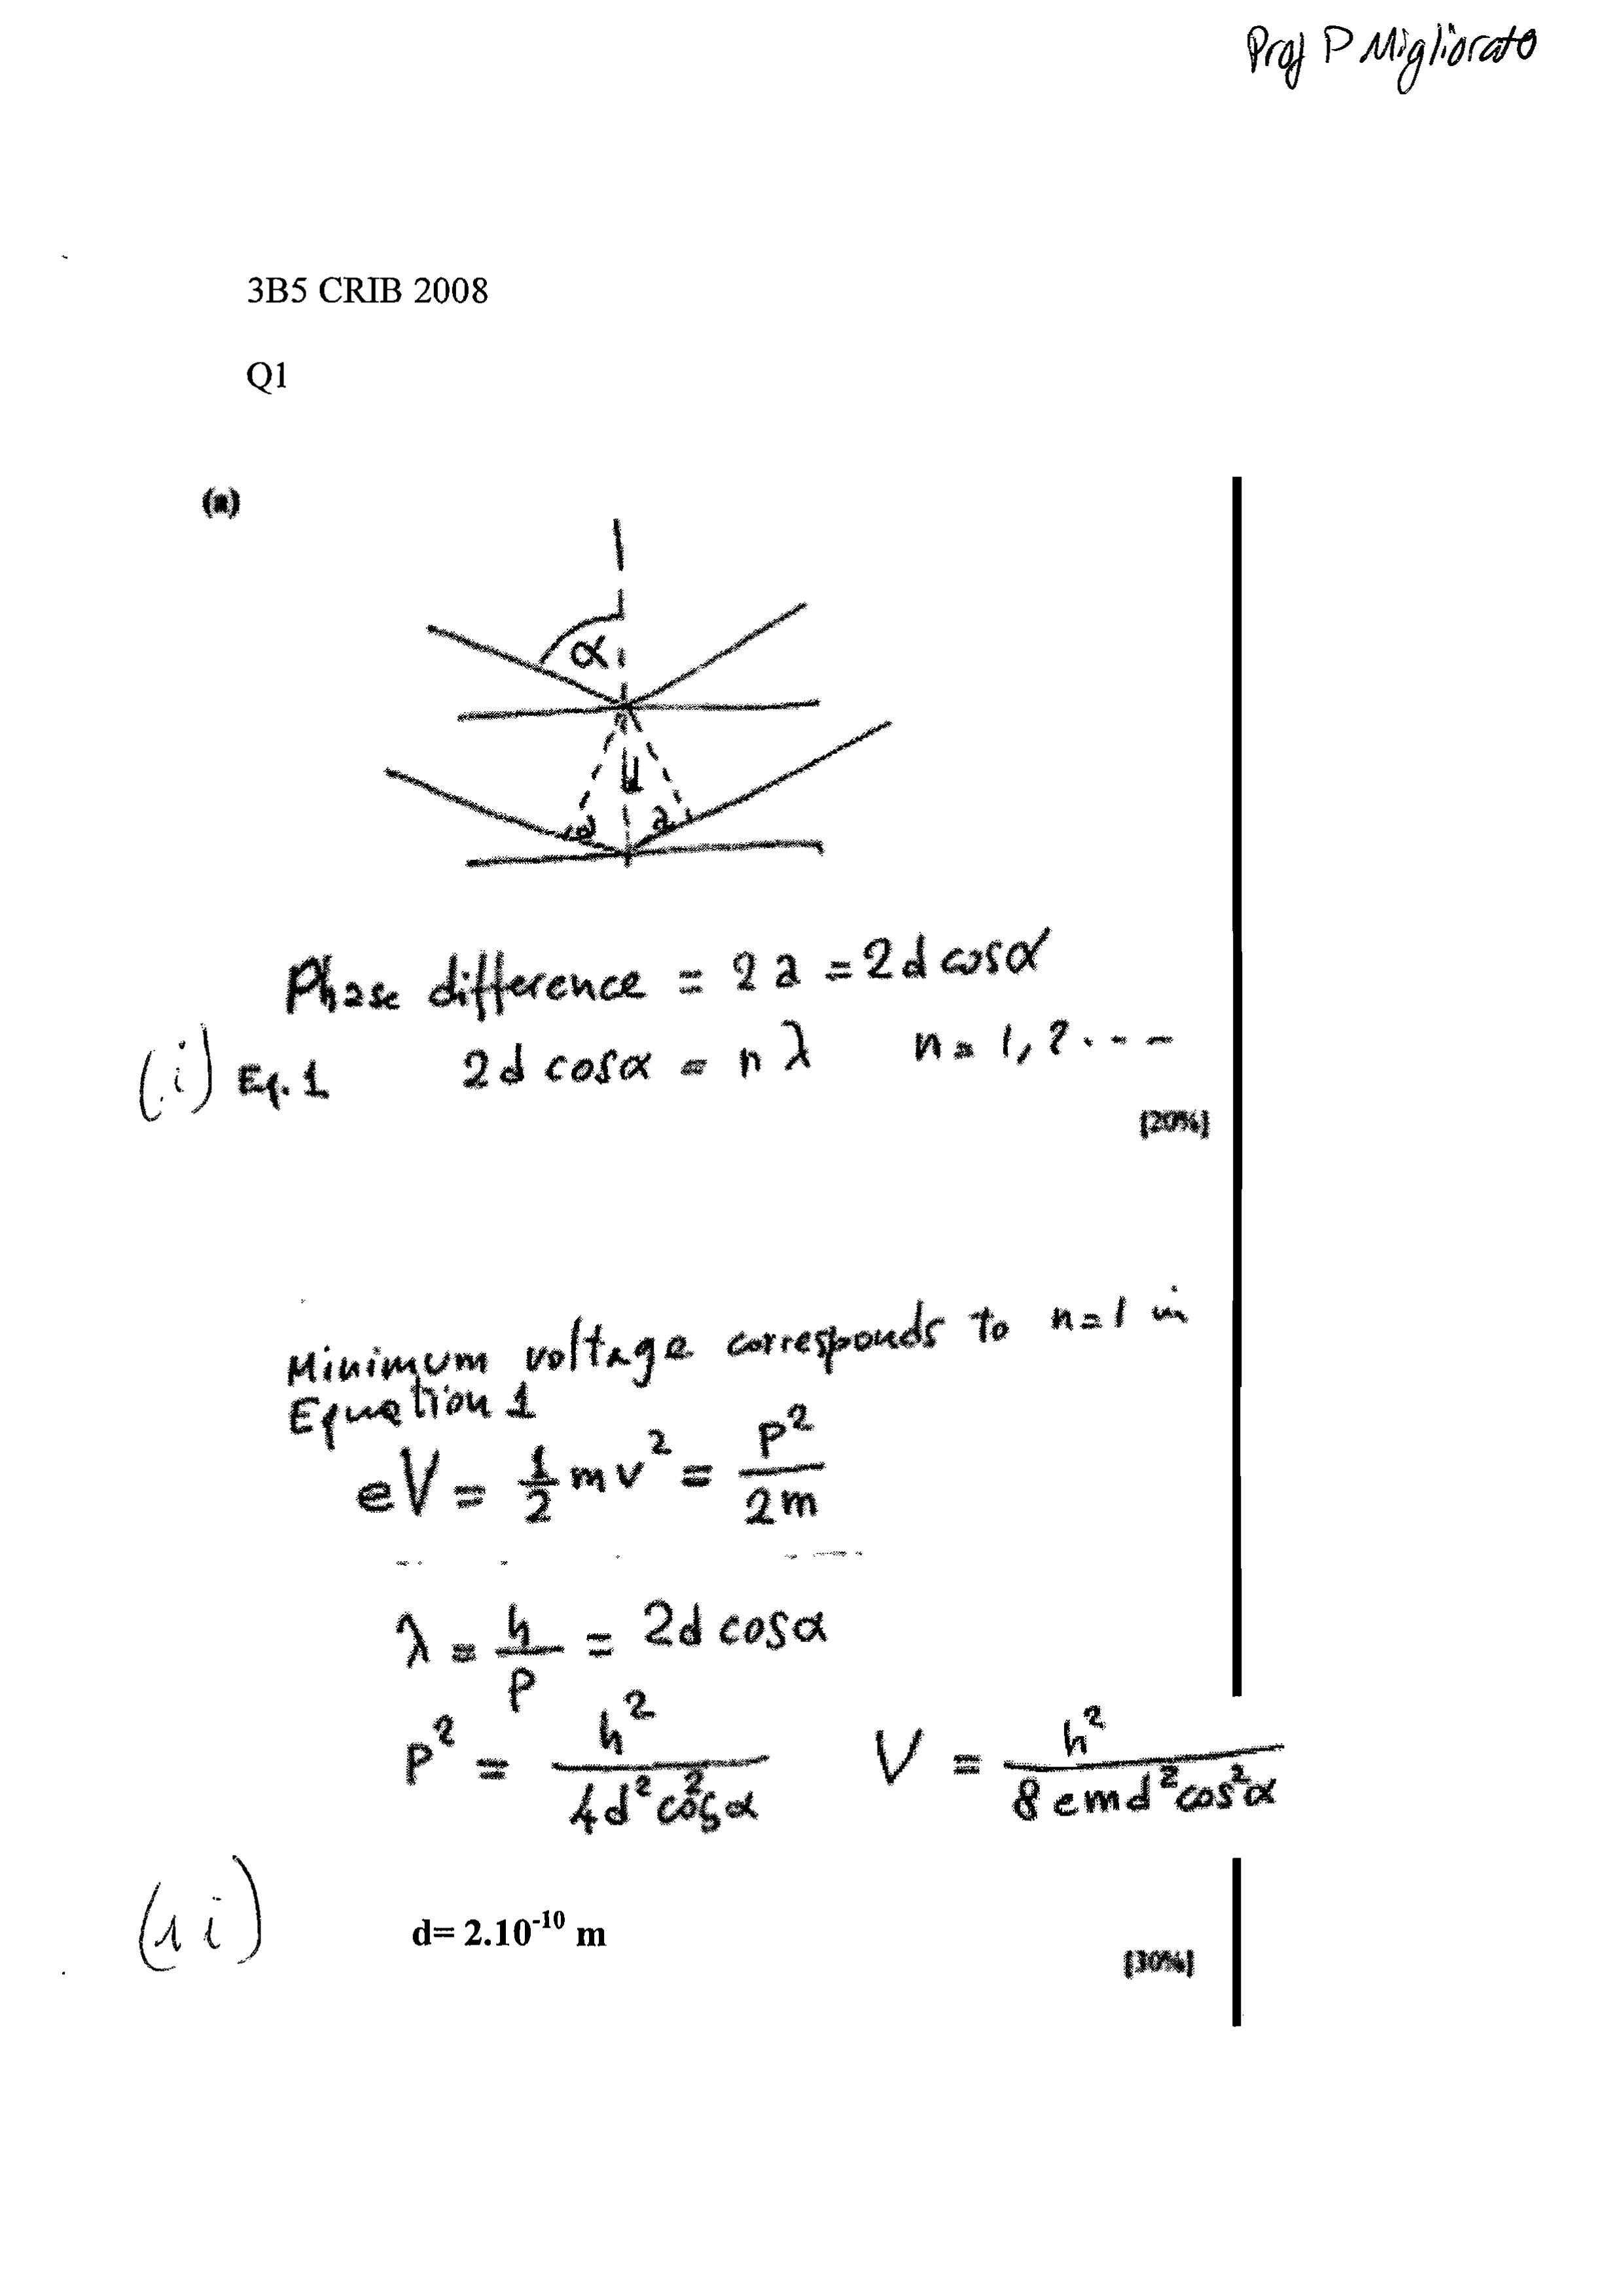 Prof P Migliorato
3B5 CRIB 2008
Q1
(a)
α
d
a a
Phase difference = 2a = 2d cosα
(i) Eq. 1 2d cosα = nλ n = 1, 2 . - - -
[20%]
Minimum voltage corresponds to n=1 in
Equation 1
eV = 1/2 mv² = P²/2m
λ = h/P = 2d cosα
P² = h²/4d²cos²α V = h²/8emd²cos²α
(ii) d= 2.10⁻¹⁰ m
[30%]